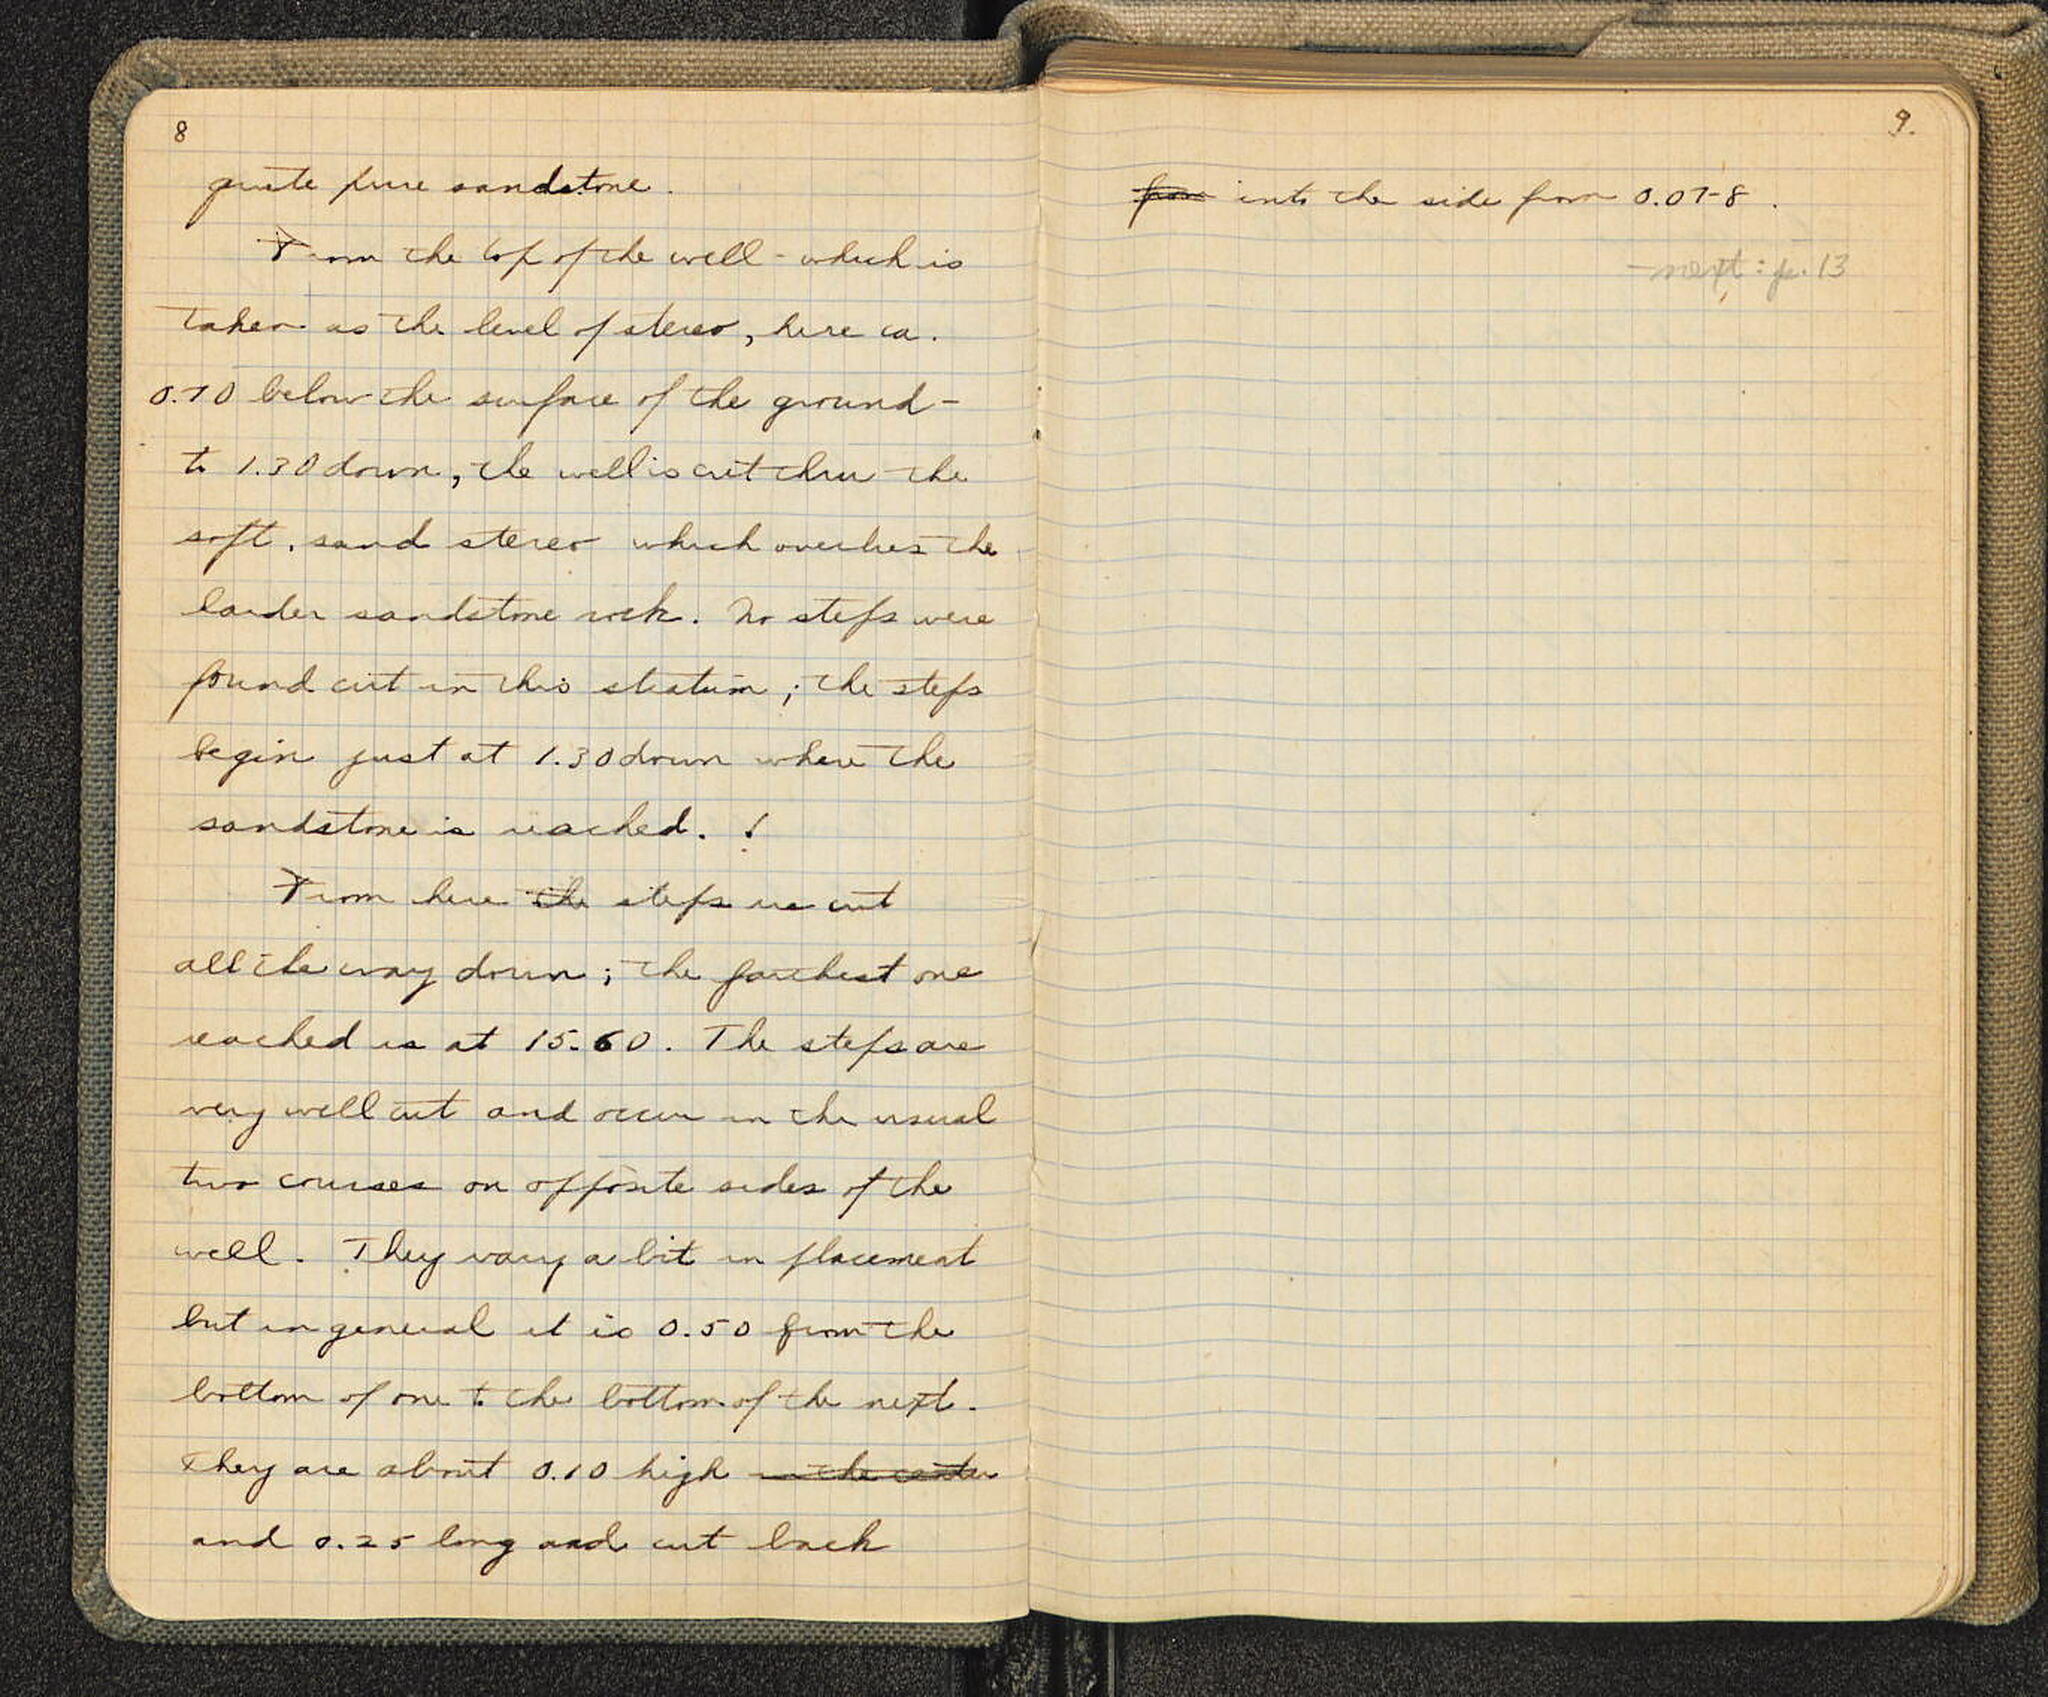 8
quite pure sandstone.
From the top of the well - which is
taken as the level of stereo, here ca.
0.70 below the surface of the ground -
to 1.30 down, the well is cut thru the
soft, sand stereo which overlies the
harder sandstone rock. No steps were
found cut in this stratum; the steps
begin just at 1.30 down where the
sandstone is reached. !
From here the steps are cut
all the way down; the farthest one
reached is at 15.60. The steps are
very well cut and occur in the usual
two courses on opposite sides of the
well. They vary a bit in placement
but in general it is 0.50 from the
bottom of one to the bottom of the next.
They are about 0.10 high in the center
and 0.25 long and cut back
9.
from into the side from 0.07-8.
- next: p. 13